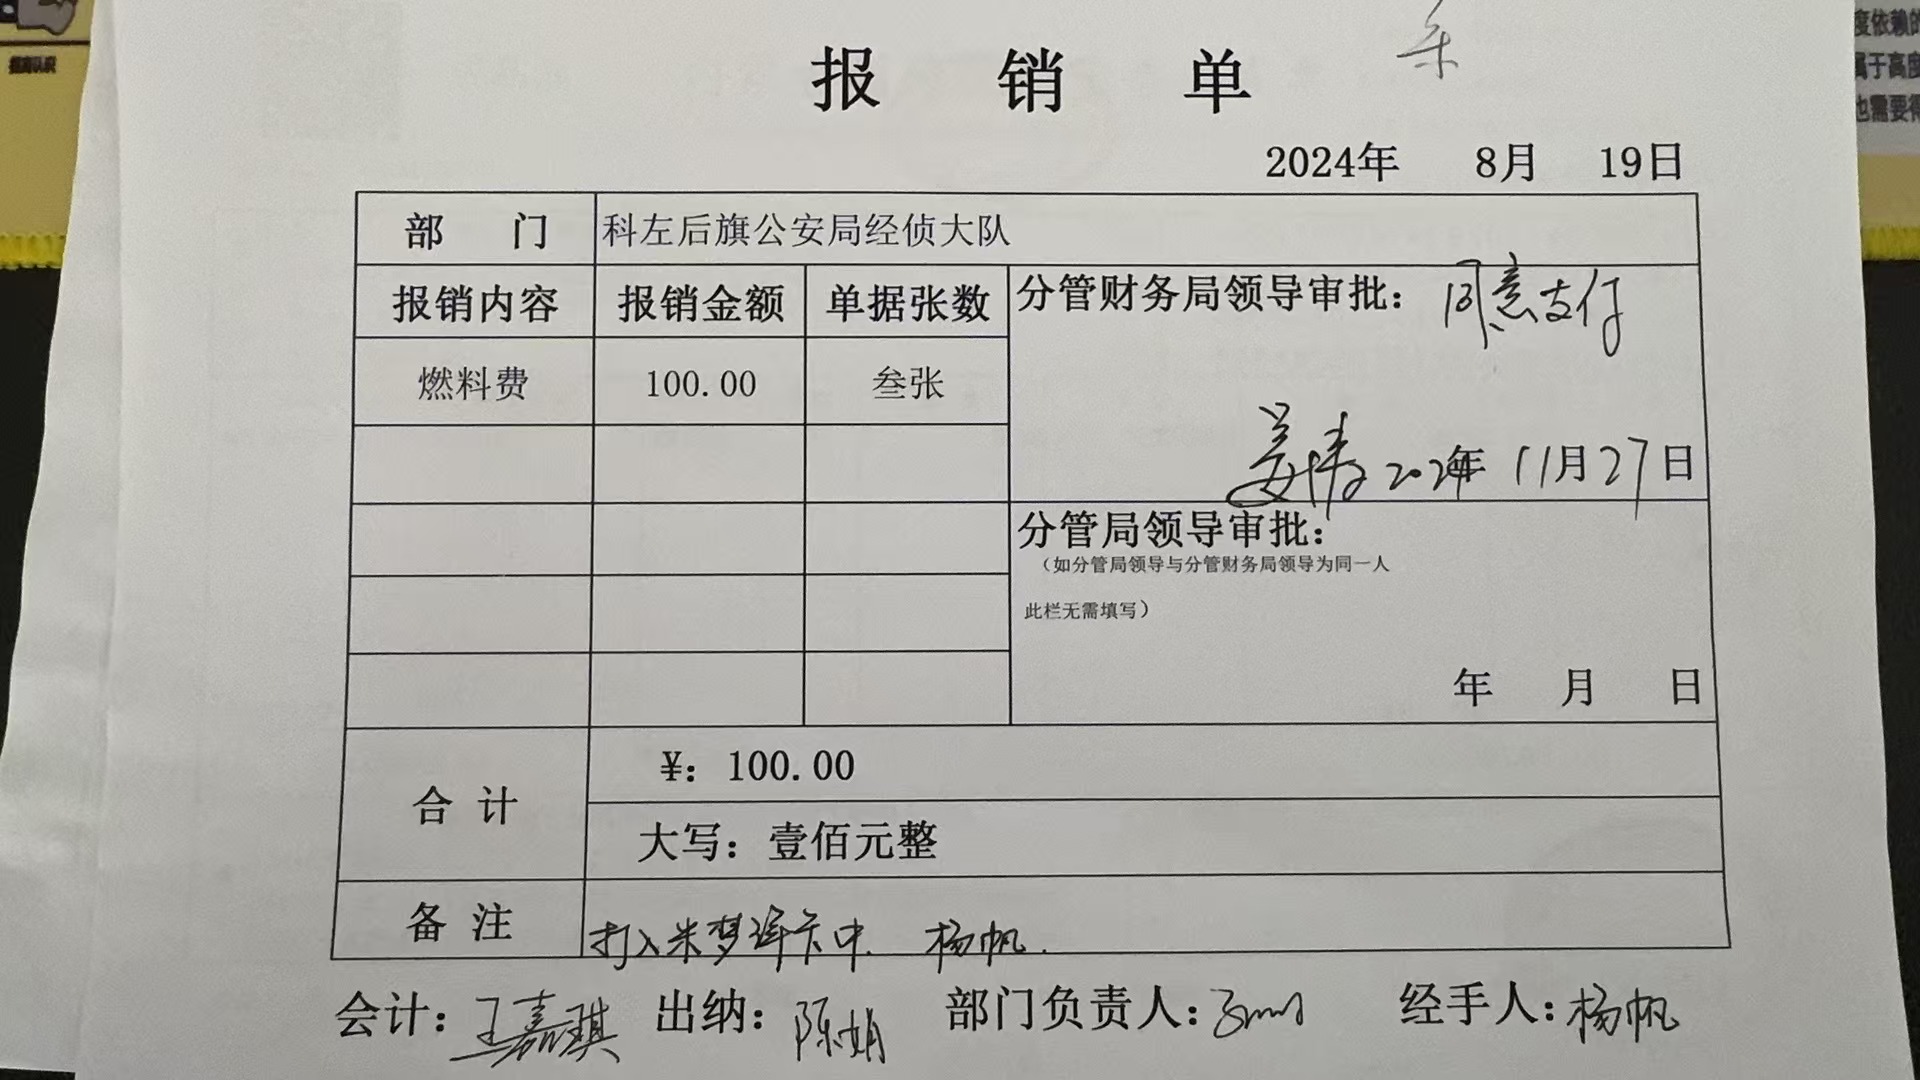 报 销 单
2024年 8月 19日
部 门 科左后旗公安局经侦大队
报销内容 报销金额 单据张数 分管财务局领导审批： 同意支付
燃料费 100.00 叁张
2024年 11月27日
分管局领导审批：
（如分管局领导与分管财务局领导为同一人
此栏无需填写）
年 月 日
合 计 ¥：100.00
大写：壹佰元整
备 注 打入米梦泽卡中. 杨帆.
会计：王嘉琪 出纳：陈娟 部门负责人： 经手人：杨帆
度依赖的
属于高度
也需要得